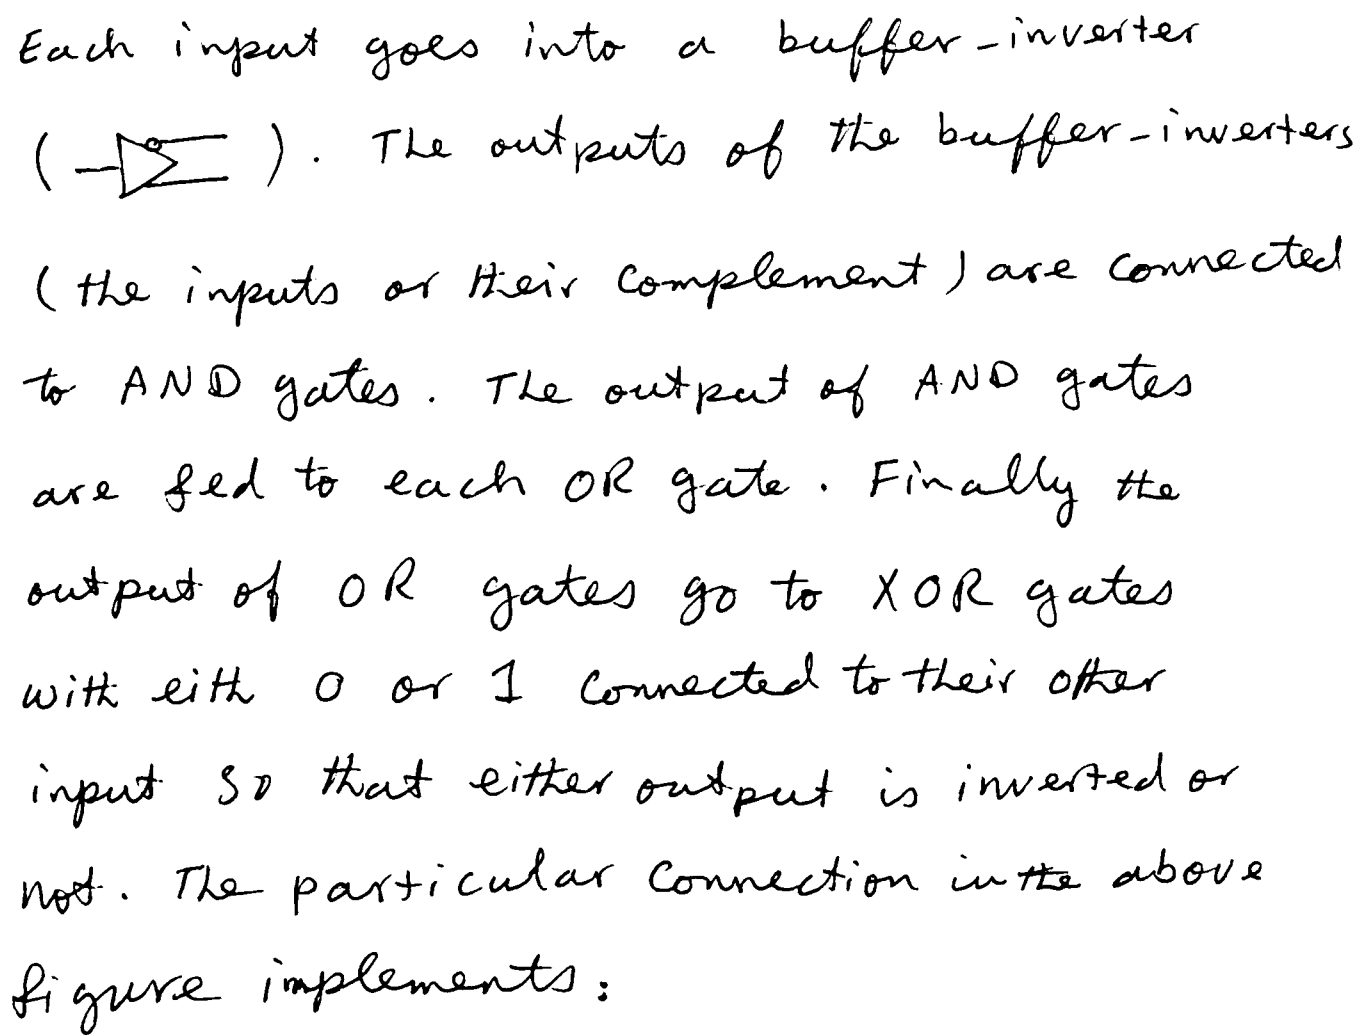 Each input goes into a buffer-inverter
( ). The outputs of the buffer-inverters
(the inputs or their complement) are connected
to AND gates. The output of AND gates
are fed to each OR gate. Finally the
output of OR gates go to XOR gates
with eith 0 or 1 connected to their other
input so that either output is inverted or
not. The particular connection in the above
figure implements: